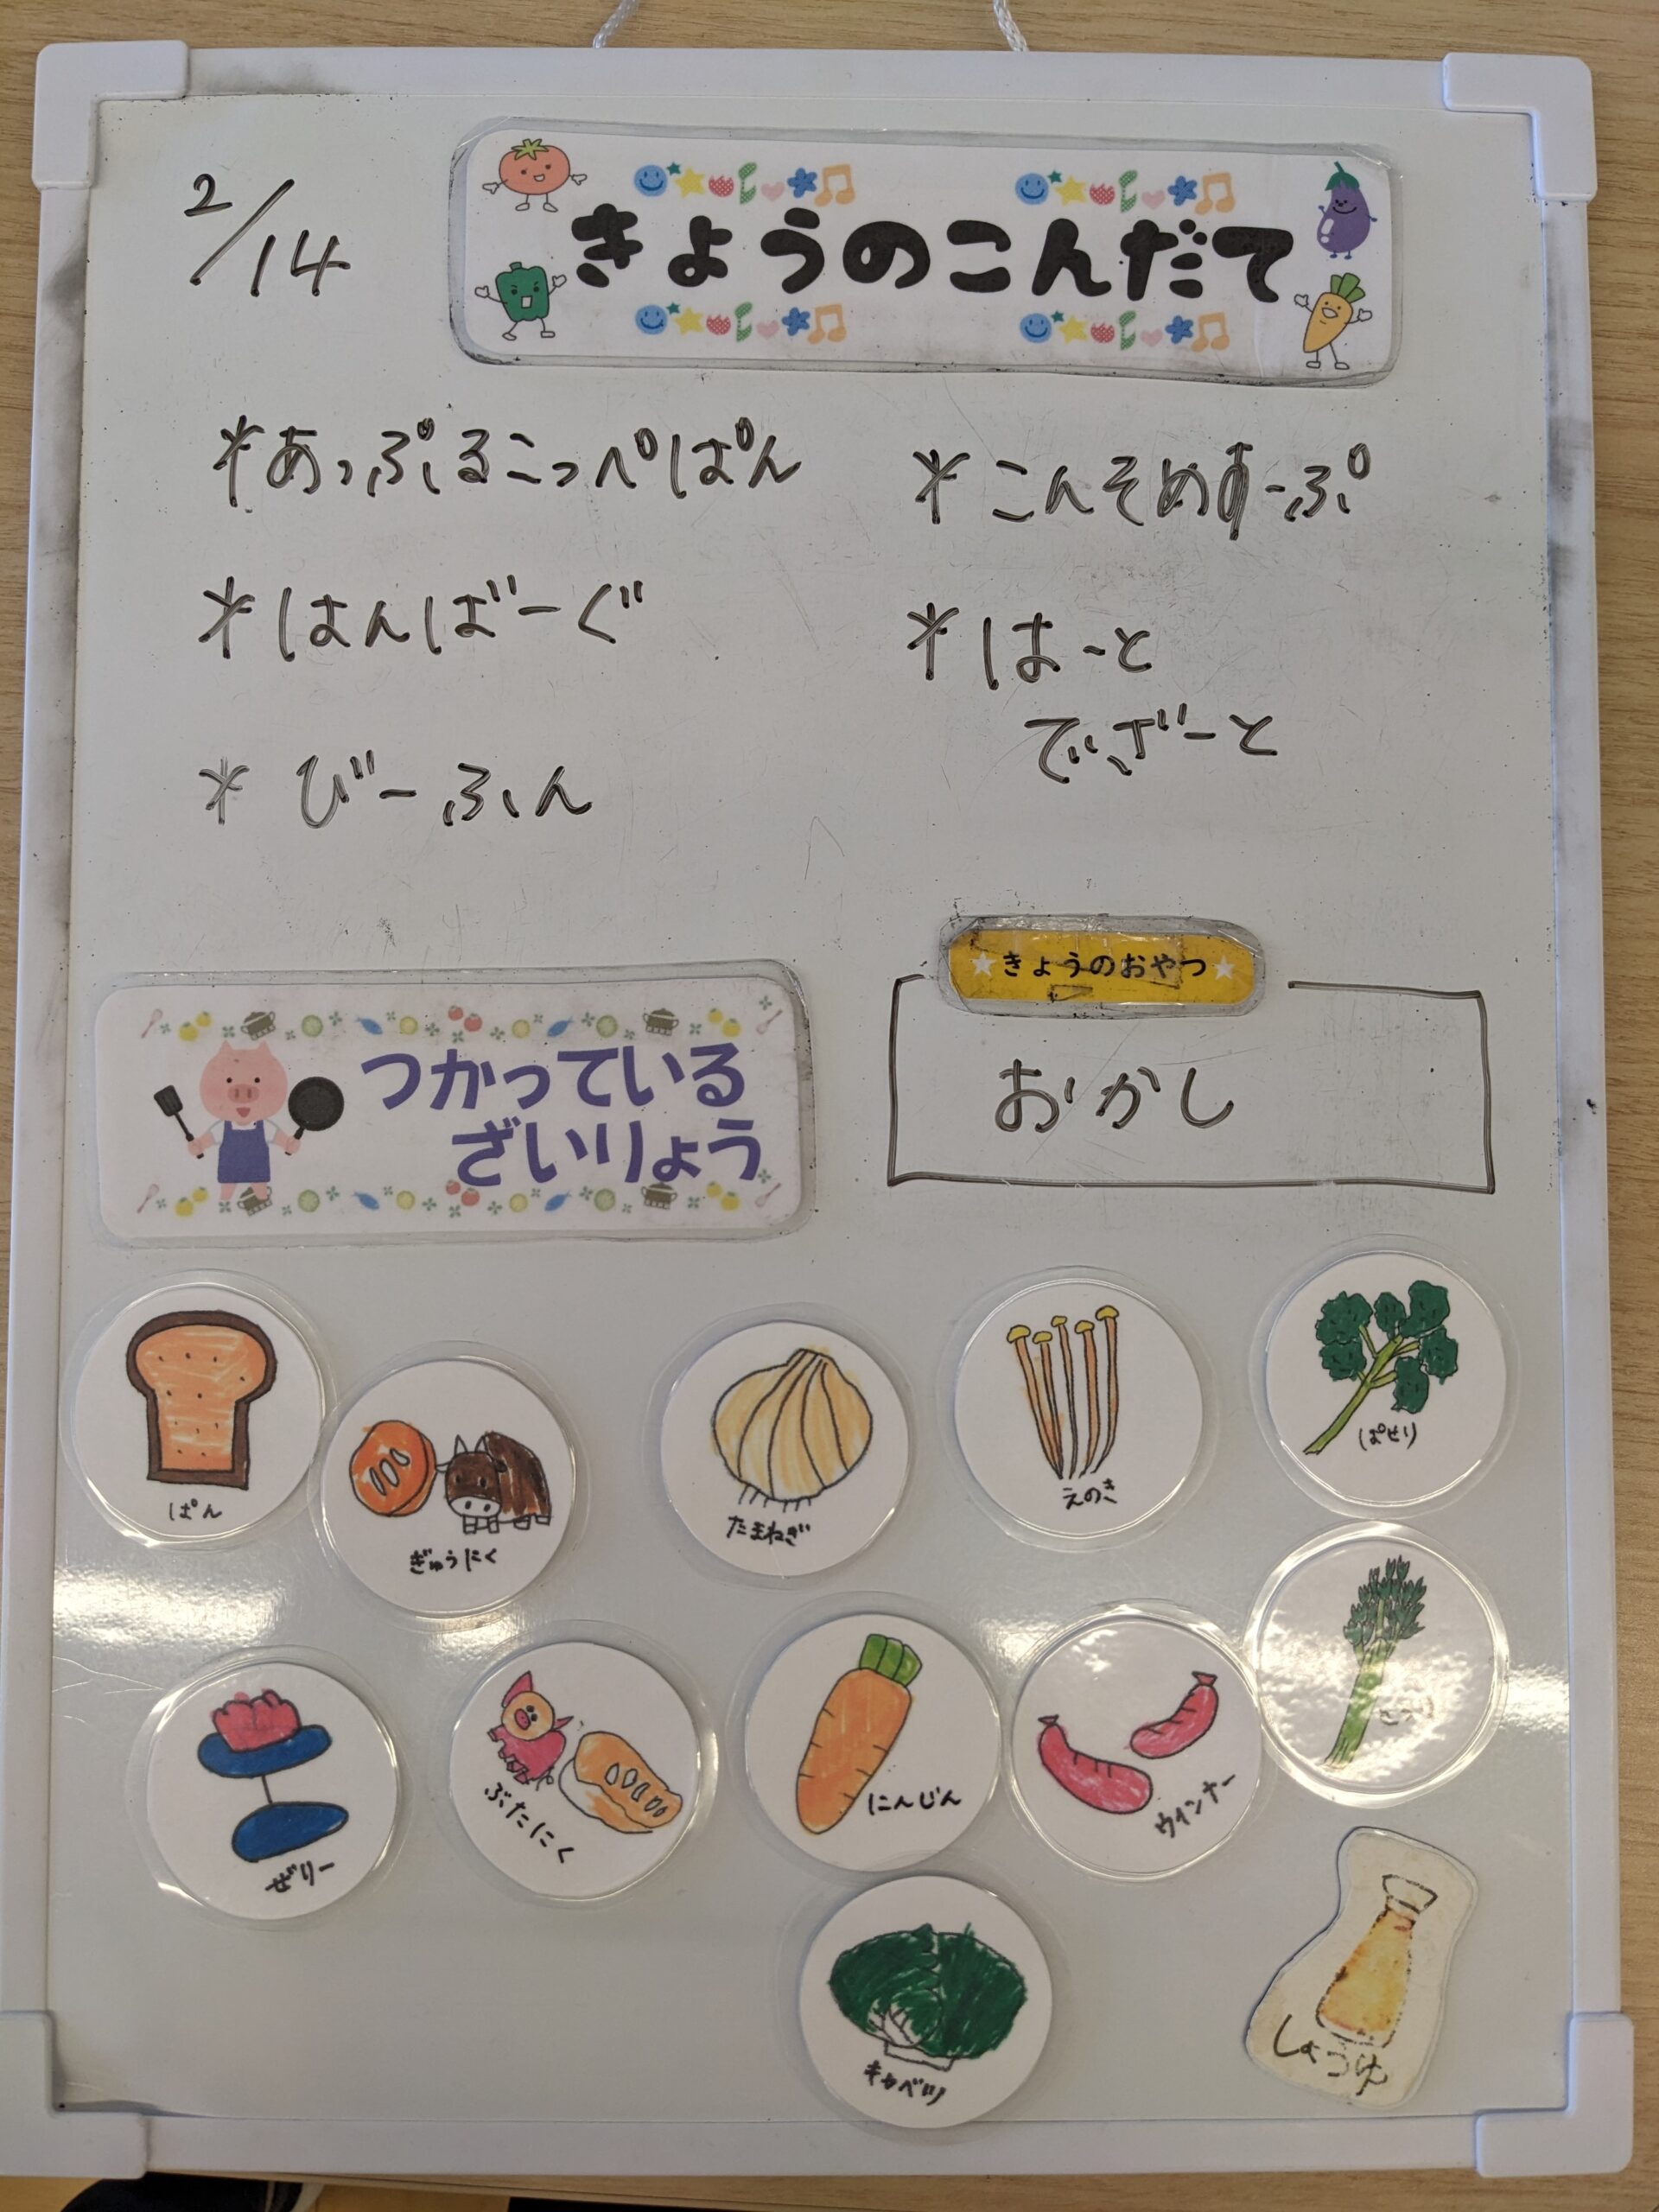 2/14
きょうのこんだて
*あっぷるこっぺぱん
*はんばーぐ
*びーふん
*こんそめすーぷ
*はーと
でざーと
きょうのおやつ
おかし
つかっている
ざいりょう
ぱん
ぎゅうにく
たまねぎ
えのき
ぱせり
ぜりー
ぶたにく
にんじん
ウインナー
キャベツ
しょうゆ